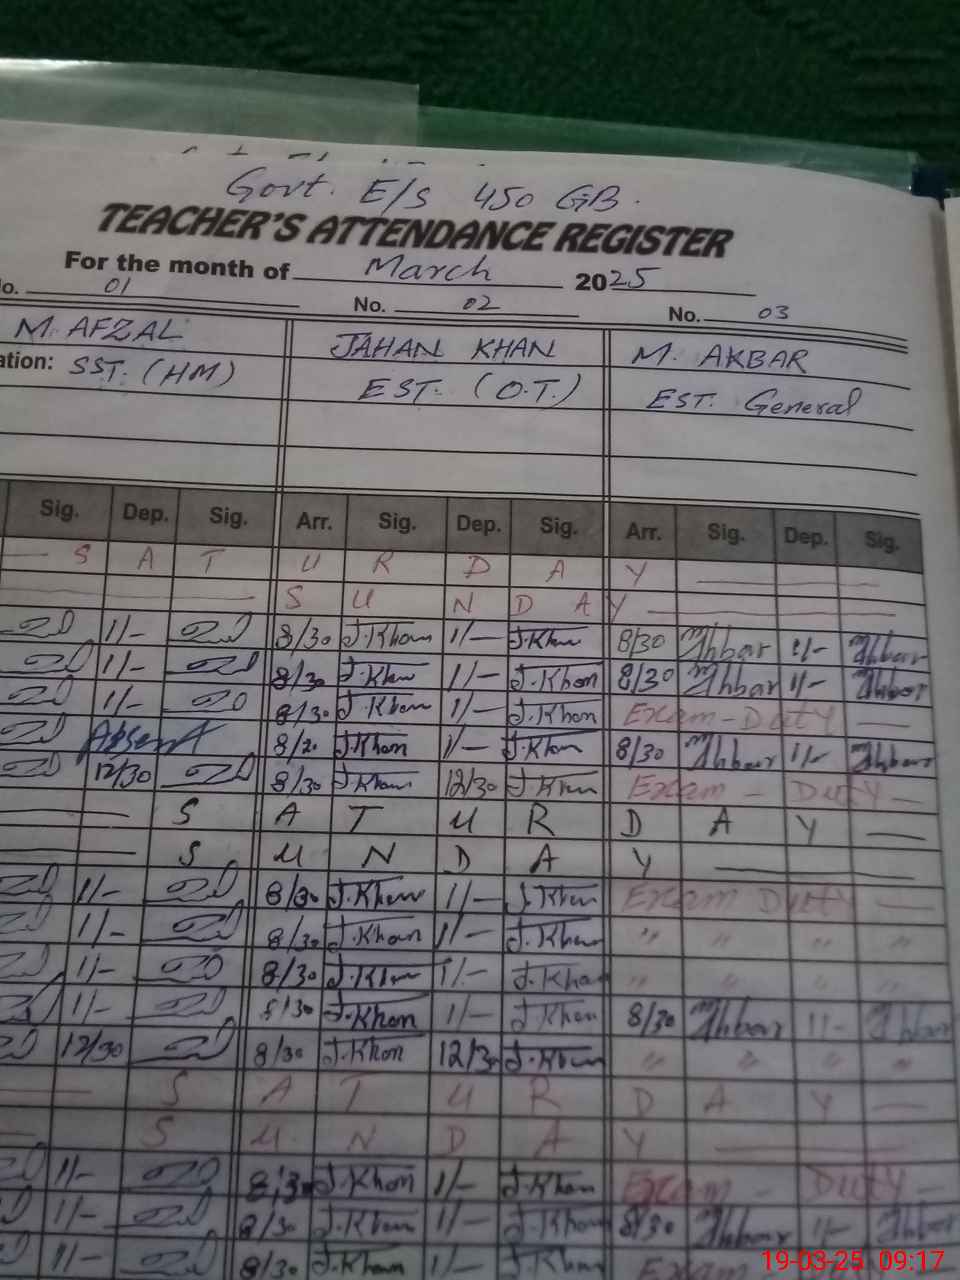 Govt. E/S 450 GB.
TEACHER'S ATTENDANCE REGISTER
For the month of March 2025
No. 01 No. 02 No. 03
M. AFZAL JAHAN KHAN M. AKBAR
ation: SST. (HM) EST. (O.T.) EST. General
Sig. Dep. Sig. Arr. Sig. Dep. Sig. Arr. Sig. Dep. Sig.
S A T U R D A Y
S U N D A Y
1/- 8/30 J.Khan 1/- J.Khan 8/30 Akbar 1/- Akbar
1/- 8/30 J.Khan 1/- J.Khan 8/30 Akbar 1/- Akbar
1/- 8/30 J.Khan 1/- J.Khan Exam-Duty
Absent 8/20 J.Khan 1/- J.Khan 8/30 Akbar 1/- Akbar
12/30 8/30 J.Khan 12/30 J.Khan Exam - Duty
S A T U R D A Y
S U N D A Y
1/- 8/30 J.Khan 1/- J.Khan Exam Duty
1/- 8/30 J.Khan 1/- J.Khan " " " "
1/- 8/30 J.Khan 1/- J.Khan " " " "
1/- 8/30 J.Khan 1/- J.Khan 8/30 Akbar 1/- Akbar
12/30 8/30 J.Khan 12/30 J.Khan " " " "
S A T U R D A Y
S U N D A Y
1/- 8/30 J.Khan 1/- J.Khan Exam - Duty
1/- 8/30 J.Khan 1/- J.Khan 8/30 Akbar 1/- Akbar
1/- 8/30 J.Khan 1/- J.Khan Exam
19-03-25 09:17